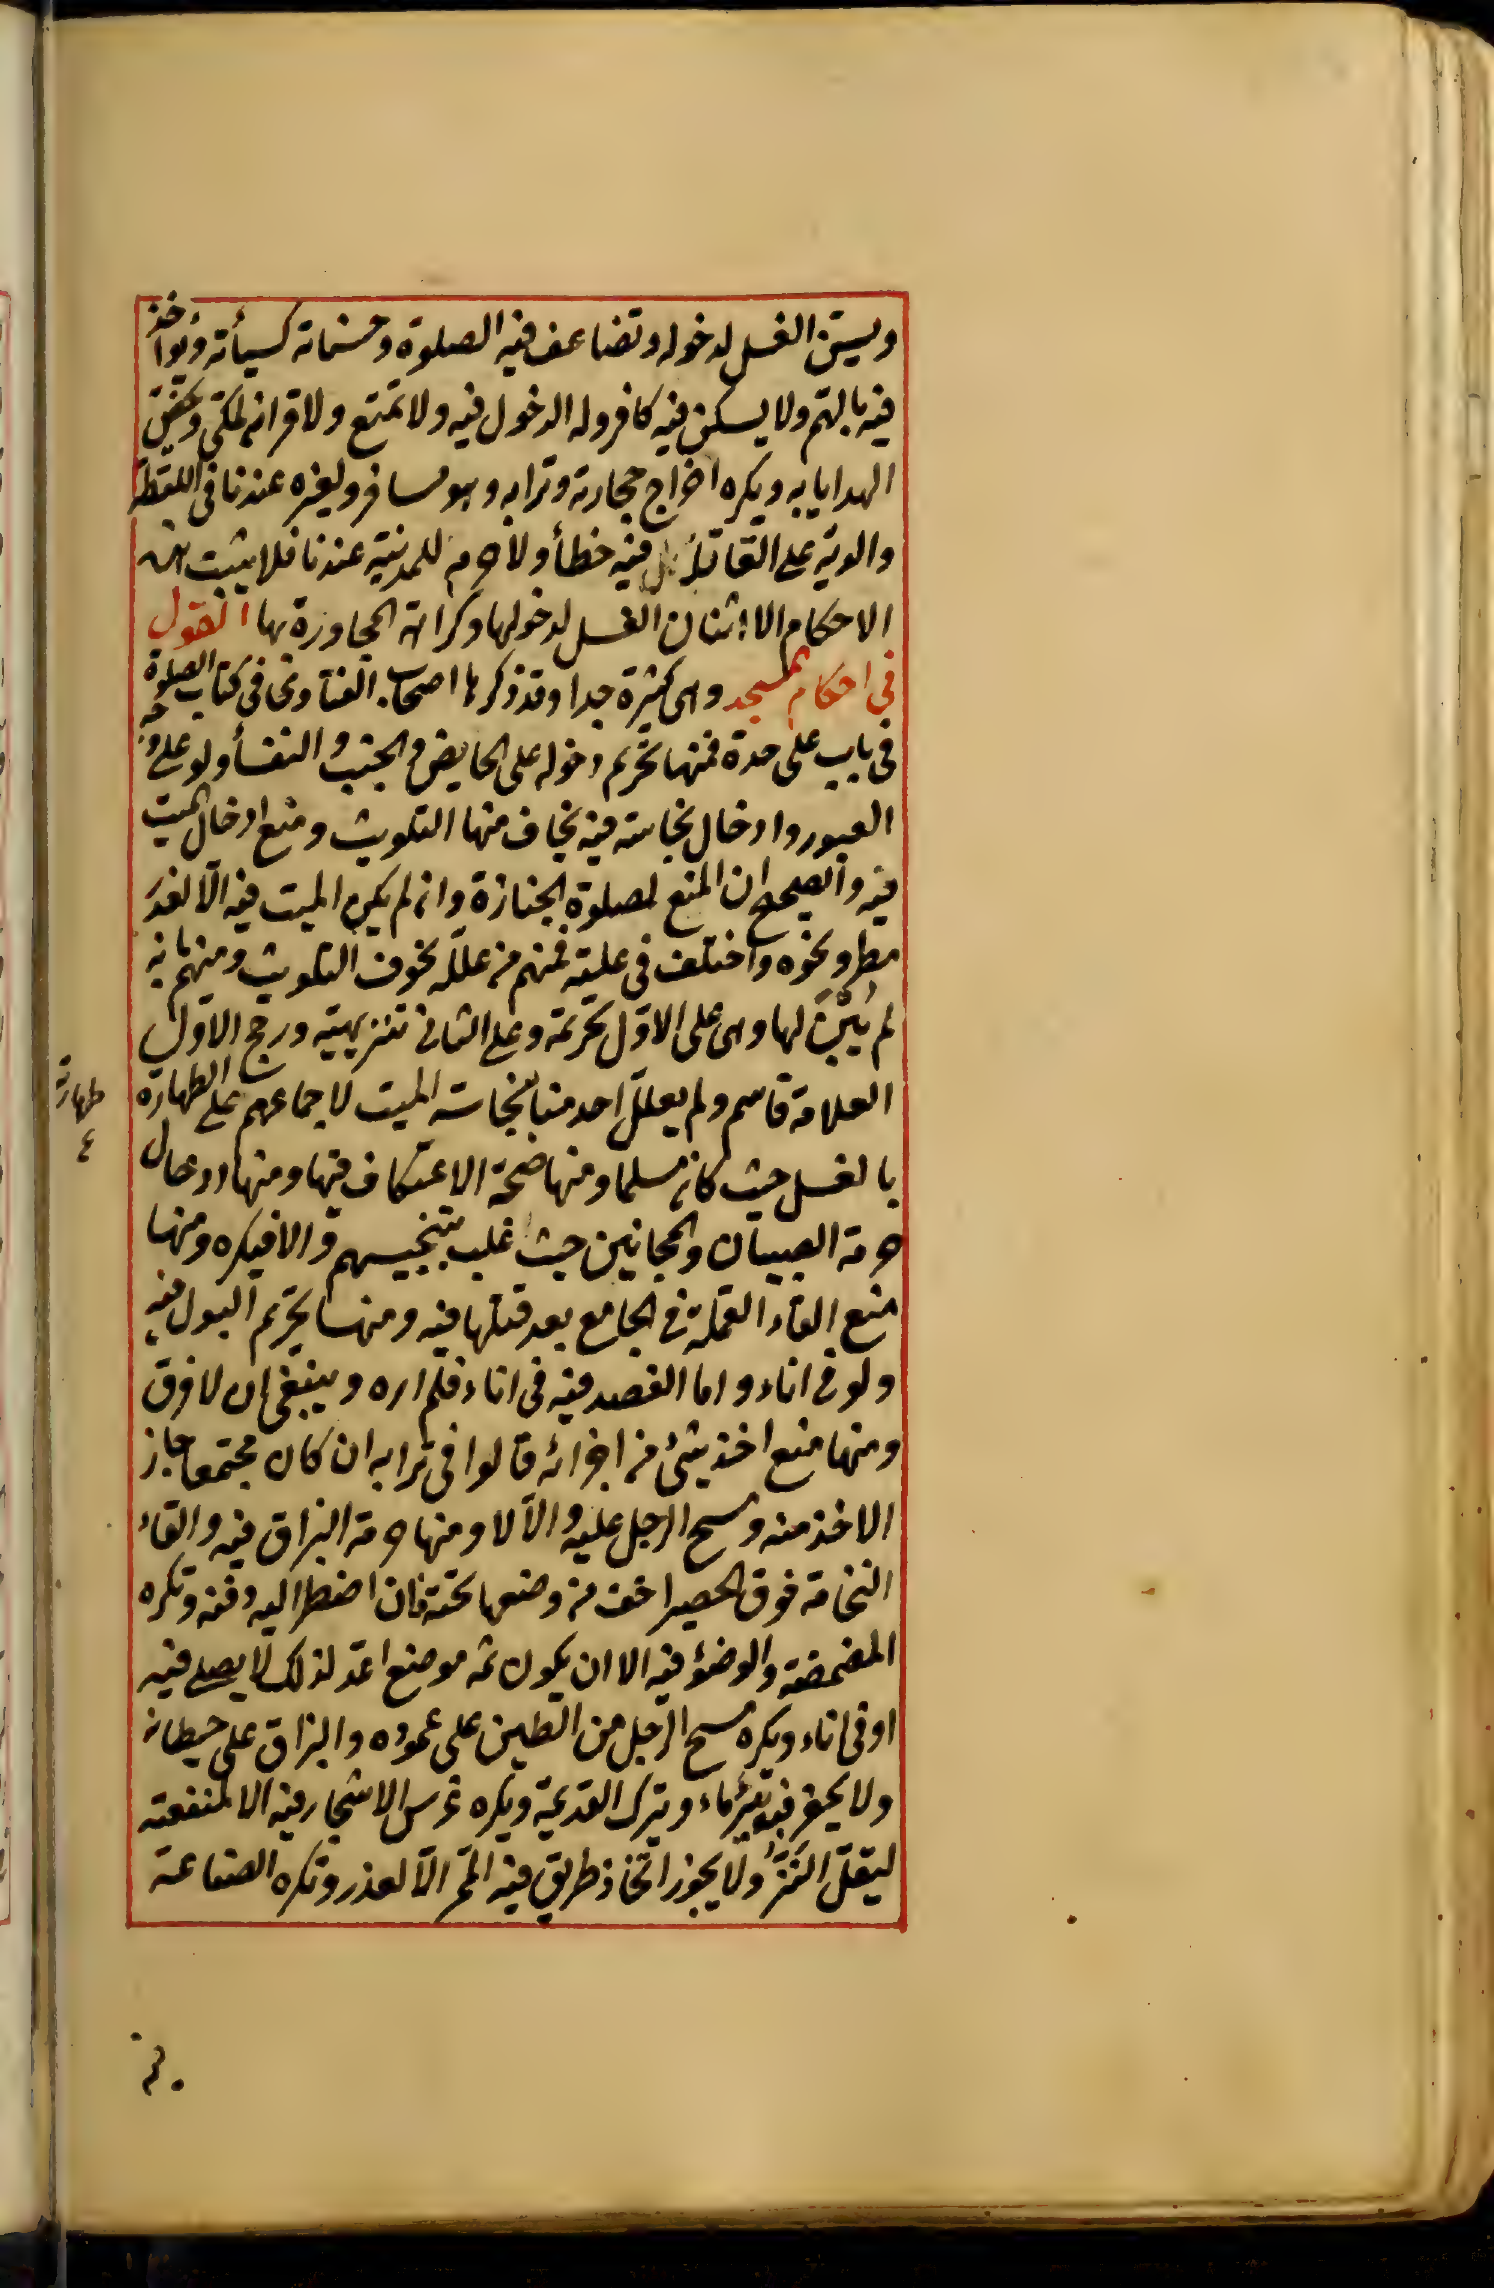 ويسن الغسل لدخوله وتضاعف فيه الصلوة وحسناته كسيأته ويؤاخذ
فيه بالهم ولا يسكن فيه كافر وله الدخول فيه ولا تمتع ولا قران لمكى ويختص
الهدايا به ويكره اخراج حجارته وترابه وهو مسافر ولغيره عندنا فى اللقطة
والدية على القاتل فيه خطأ ولا حرم للمدينة عندنا فلا يثبت له
الاحكام الا اثنان الغسل لدخولها وكراهة المجاورة بها القول
فى احكام المسجد وهى كثيرة جدا وقد ذكرها اصحاب الفتاوى فى كتاب الصلوة
فى باب على حدة فمنها تحريم دخوله على الحايض والجنب والنفسأ ولو على وجه
العبور وادخال نجاسة فيه يخاف منها التلويث ومنع ادخال الميت
فيه والصحيح ان المنع لصلوة الجنازة وان لم يكن الميت فيه الا لعذر
مطر ونحوه واختلف فى علته فمنهم من علله بخوف التلويث ومنهم بانه
لم يبن لها وهى على الاول تحريمة وعلى الثانى تنزيهية ورجح الاول
العلامة قاسم ولم يعلل احد منا بنجاسة الميت لاجماعهم على الطهارة
طهارته
ع
بالغسل حيث كان مسلما ومنها صحة الاعتكاف فيها ومنها ادخال
حرمة الصبيان والمجانين حيث غلب تنجيسهم والا فيكره ومنها
منع القاء القملة فى الجامع بعد قتلها فيه ومنها تحريم البول فيه
ولو فى اناء واما الفصد فيه فى اناء فلم اره وينبغى ان لا فرق
ومنها منع اخذ شئ من اجزائه قالوا فى ترابه ان كان مجتمعا جاز
الاخذ منه ومسح الرجل عليه والا لا ومنها حرمة البزاق فيه والقاء
النخامة فوق الحصير اخف من وضعها تحته فان اضطر اليه دفنه وتكره
المضمضة والوضوء فيه الا ان يكون ثمه موضع اعد لذلك لا يصلى فيه
او فى اناء ويكره مسح الرجل من الطين على عموده والبزاق على حيطانه
ولا يحفر فيه بئر ماء ويترك القديمة ويكره غرس الاشجار فيه الا لمنفعة
ليقل النز ولا يجوز اتخاذ طريق فيه للمر الا لعذر وتكره الصناعة